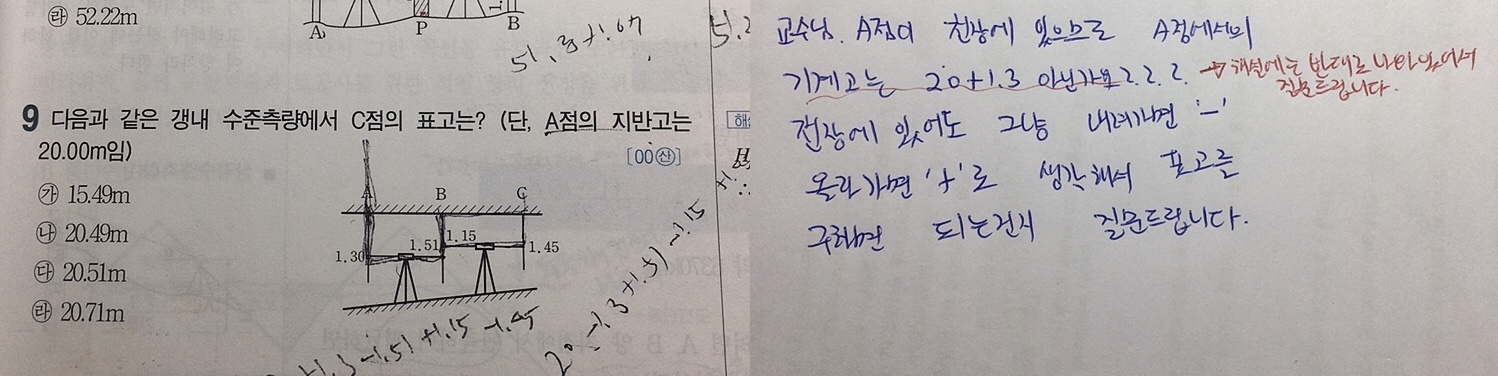 ㉱ 52.22m
A
P
B
51.3+1.07
9 다음과 같은 갱내 수준측량에서 C점의 표고는? (단, A점의 지반고는
20.00m임)
[00㉦]
㉮ 15.49m
㉯ 20.49m
㉰ 20.51m
㉱ 20.71m
A
B
C
1.30
1.51
1.15
1.45
+1.3-1.51+1.15-1.45
20-1.3+1.51-1.15
교수님. A점이 천장에 있으므로 A점에서의
기계고는 20+1.3 아닌가요???
→ 해설에는 반대로 나와있어서
질문드립니다.
천장에 있어도 그냥 내려가면 '-'
올라가면 '+'로 생각해서 표고를
구하면 되는건지 질문드립니다.